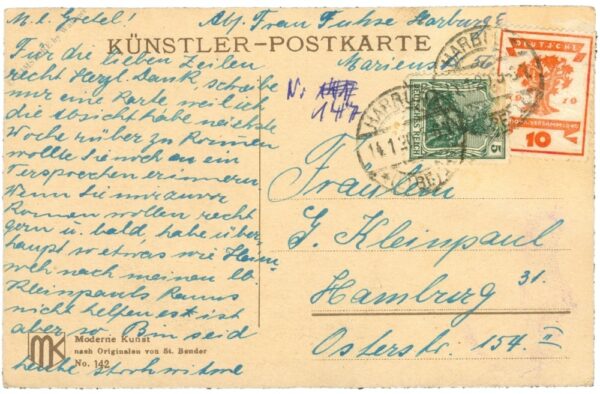 M. l. Gretel! Abs. Frau Fuhse Harburg E
KÜNSTLER-POSTKARTE
Mariens
Für die lieben Zeilen
recht Herzl. Dank schreibe
nur eine Karte weil ich
die Absicht habe nächste
Woche rüber zu kommen
wollte Sie noch an ein
Versprechen erinnern
Wenn Sie mir zuvor
kommen wollen recht
gern u. bald, habe über-
haupt so etwas wie Heim
weh nach meinen lb.
Kleinpauls Kanns
nicht helfen es ist
aber so. Bin seid
heute Strohwitwe
No 147
HARBURG
14.1.20
(ELBE)
DEUTSCHES REICH
5
DEUTSCHE
1919
NATIONALVERSAMMLUNG
10
Fräulein
G. Kleinpaul
Hamburg 31.
Osterstr. 154 II
MK
Moderne Kunst
nach Originalen von St. Bender
No. 142